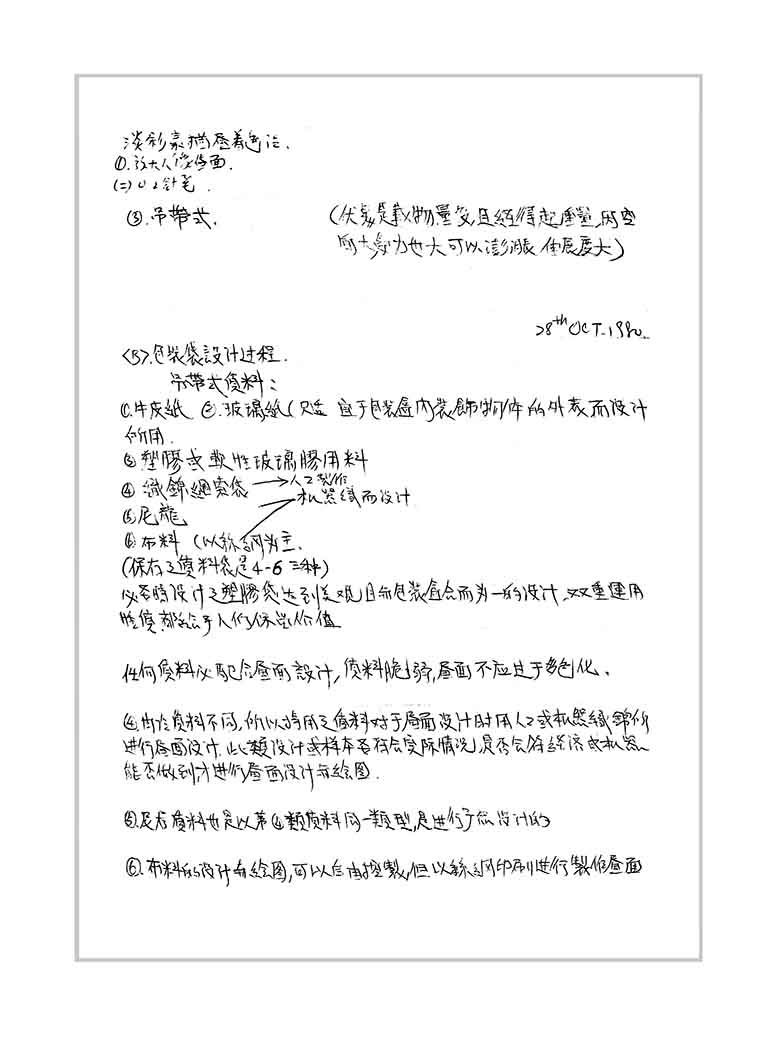 淡彩素描畫着色法.
①.放大人像画面.
(二)
針笔.
③.吊帶式.
(优点是載物量多,且經得起重量,内空
大,力也大可以澎漲,伸展度大)
28th OCT.1980.
<B>.包裝袋設计过程.
吊帶式質料:
①.牛皮紙 ②.玻璃紙(只适宜于包裝盒内裝飾物体的外表而设计
所用.
③塑膠或軟性玻璃膠用料
④織錦繩索袋 → 人工製作
机器織而设计
⑤尼龍
⑥布料(以絲網为主.
(保存之質料袋是4-6三种)
设计之塑膠袋达到美观且与包装盒合而为一的设计.双重運用
性質都給于人们保尚价值
任何質料必配合畫面設计,質料脆弱,畫面不应过于多色化.
④由於質料不同,所以採用之質料对于畫面设计时用人工或机器織錦所
进行畫面设计.此類设计或样本要符合实际情况,是否会符经济或机器
能否做到才进行畫面设计与绘图.
⑤.尼龙質料也是以第④類質料同一類型,是进行设计的
⑥.布料的设计与绘图,可以自由控製,但以絲網印刷进行製作畫面